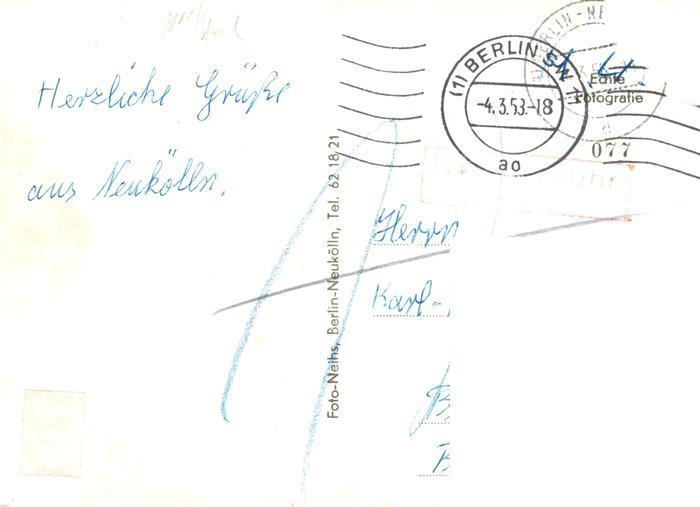 Herzliche Grüße
aus Neukölln.
Foto-Neihs, Berlin-Neukölln, Tel. 62 18 21
(1) BERLIN SW 11
-4.3.53.-18
ao
BERLIN - NE
Echte
Fotografie
077
Herrn
Karl-